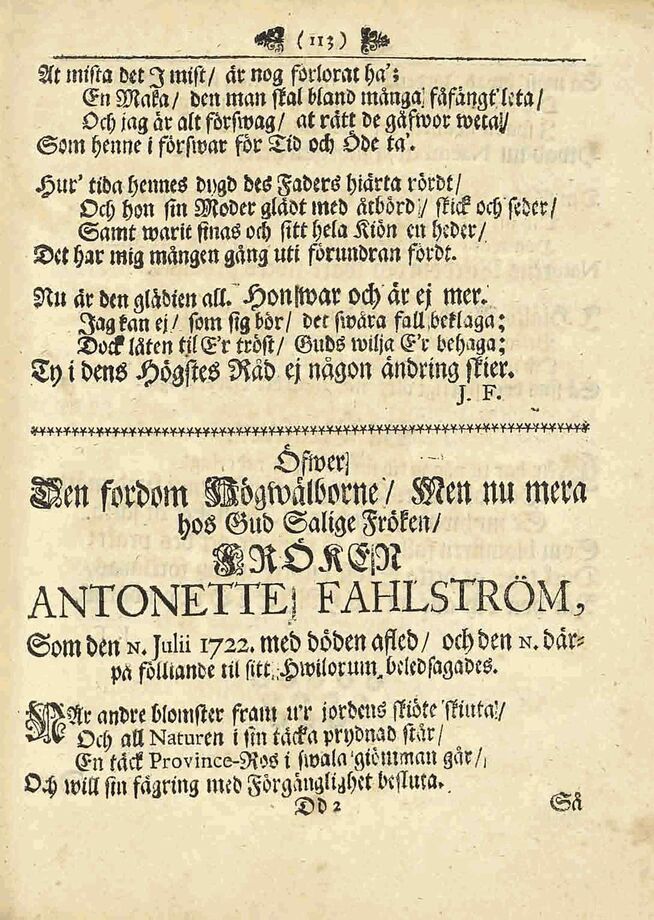 (113)
At mista det I mist/ är nog förlorat ha';
En Maka/ den man skal bland många fåfängt leta/
Och jag är alt förswag/ at rätt de gåfwor weta/
Som henne i förswar för Tid och Öde ta'.
Hur' tida hennes dygd des Faders hiärta rördt/
Och hon sin Moder glädt med åtbörd/ skick och seder/
Samt warit sinas och sitt hela Kiön en heder/
Det har mig mången gång uti förundran fördt.
Nu är den glädien all. Hon war och är ej mer.
Jag kan ej/ som sig bör/ det swåra fall beklaga;
Dock låten til E'r tröst/ Guds wilja E'r behaga;
Ty i dens Högstes Råd ej någon ändring skier.
J. F.
Öfwer
Den fordom Högwälborne/ Men nu mera
hos Gud Salige Fröken/
FRÖKEN
ANTONETTE FAHLSTRÖM,
Som den N. Julii 1722. med döden afled/ och den N. där-
på fölliande til sitt Hwilorum beledsagades.
När andre blomster fram u'r jordens skiöte skiuta/
Och all Naturen i sin täcka prydnad står/
En täck Province-Ros i swala giömman går/
Och will sin fägring med Förgänglighet besluta.
Dd 2
Så